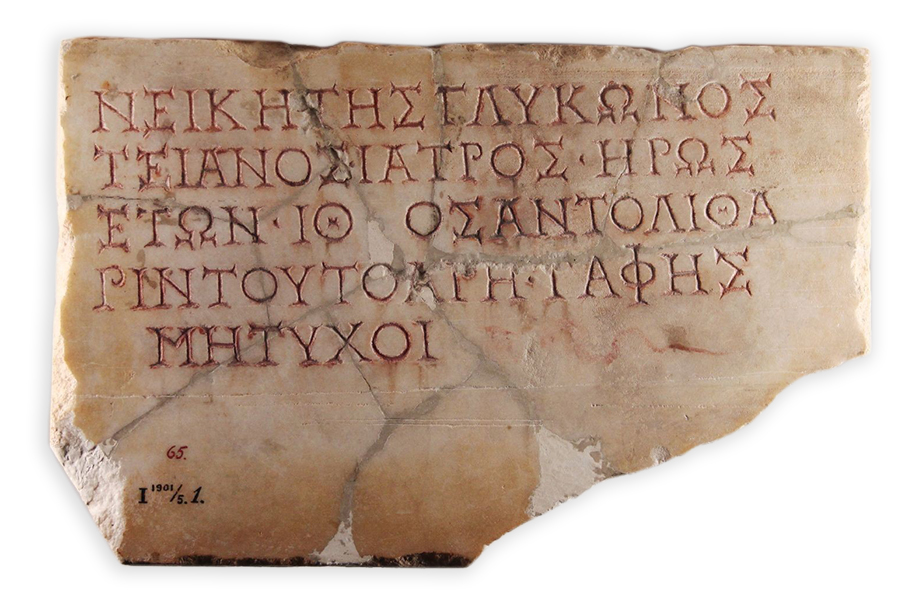 ΝΕΙΚΗΤΗΣΓΛΥΚΩΝΟΣ
ΤΕΙΑΝΟΣΙΑΤΡΟΣ·ΗΡΩΣ
ΕΤΩΝ·ΙΘ ΟΣΑΝΤΟΛΙΘΑ
ΡΙΝΤΟΥΤΟΑΡΗ·ΤΑΦΗΣ
ΜΗΤΥΧΟΙ
65.
I 1901/5. 1.